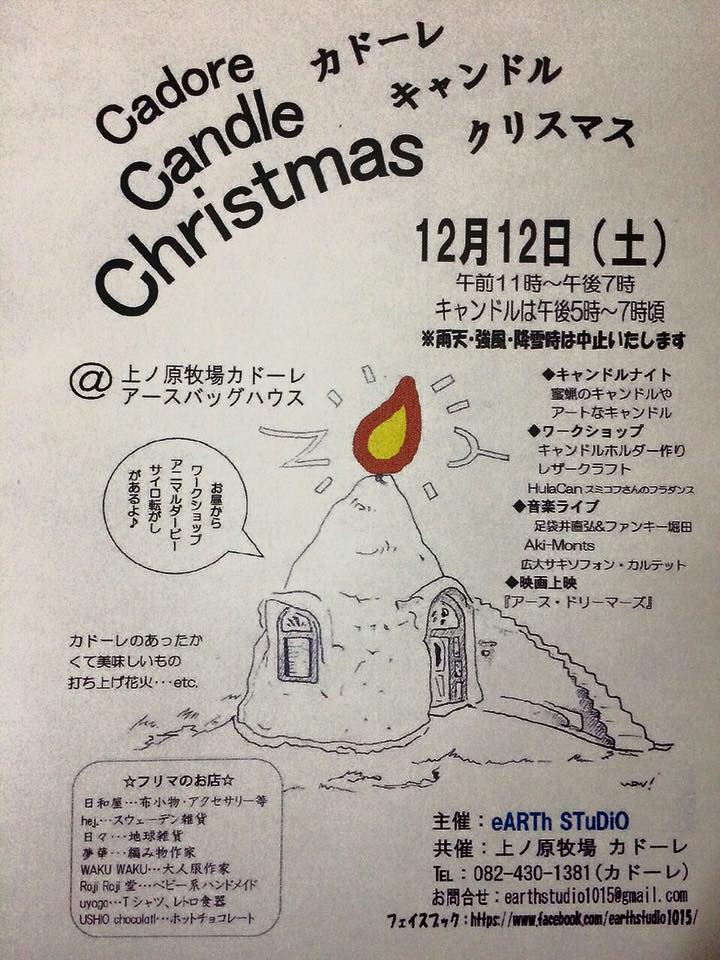 Cadore カドーレ
Candle キャンドル
Christmas クリスマス
12月12日（土）
午前11時～午後7時
キャンドルは午後5時～7時頃
※雨天・強風・降雪時は中止いたします
@ 上ノ原牧場カドーレ
アースバッグハウス
◆キャンドルナイト
蜜蝋のキャンドルや
アートなキャンドル
◆ワークショップ
キャンドルホルダー作り
レザークラフト
HulaCan スミコフさんのフラダンス
◆音楽ライブ
足袋井直弘&ファンキー堀田
Aki-Monts
広大サキソフォン・カルテット
◆映画上映
『アース・ドリーマーズ』
お昼から
ワークショップ
アニマルダービー
サイロ転がし
があるよ♪
カドーレのあったか
くて美味しいもの
打ち上げ花火…etc.
wow!
☆フリマのお店☆
日和屋…布小物・アクセサリー等
hej.…スウェーデン雑貨
日々…地球雑貨
夢華…編み物作家
WAKU WAKU…大人服作家
Roji Roji 堂…ベビー系ハンドメイド
uyoga…Tシャツ、レトロ食器
USHIO chocolatl…ホットチョコレート
主催：eARTh STuDiO
共催：上ノ原牧場 カドーレ
TEL：082-430-1381（カドーレ）
お問合せ：earthstudio1015@gmail.com
フェイスブック：https://www.facebook.com/earthstudio1015/